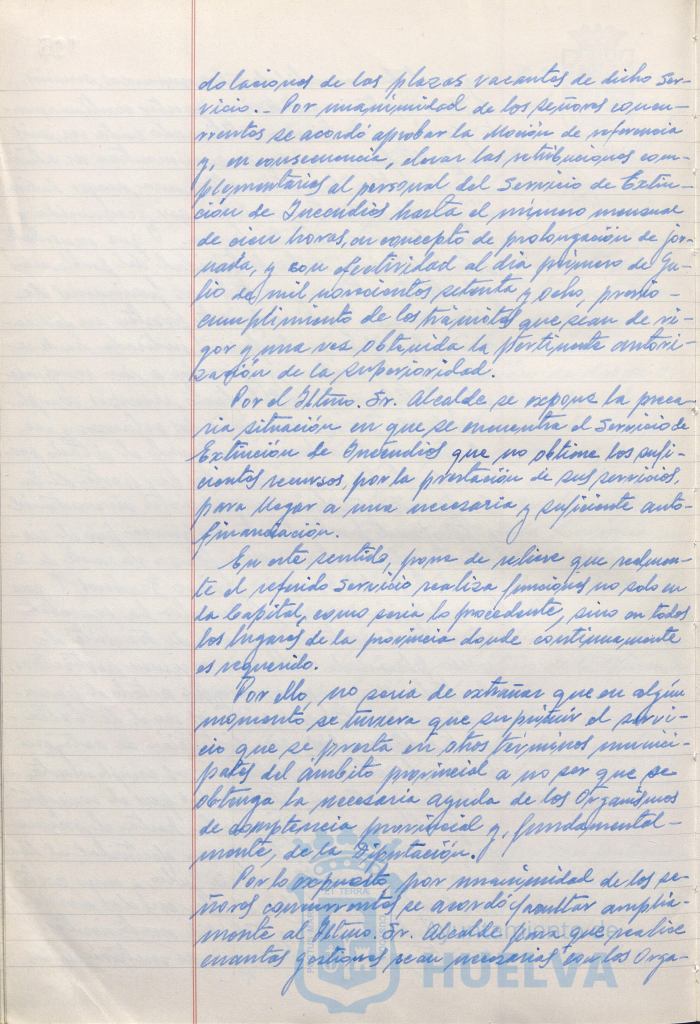 dotaciones de las plazas vacantes de dicho Ser-
vicio.- Por unanimidad de los señores concu-
rrentes se acordó aprobar la Moción de referencia
y, en consecuencia, elevar las retribuciones com-
plementarias al personal del Servicio de Extin-
ción de Incendios hasta el número mensual
de cien horas, en concepto de prolongación de jor-
nada, y con efectividad al día primero de Ju-
lio de mil novecientos setenta y ocho, previo
cumplimiento de los trámites que sean de ri-
gor y una vez obtenida la pertinente autori-
zación de la superioridad.
Por el Iltmo. Sr. Alcalde se expone la preca-
ria situación en que se encuentra el Servicio de
Extinción de Incendios que no obtiene los sufi-
cientes recursos, por la prestación de sus servicios,
para llegar a una necesaria y suficiente auto-
financiación.
En este sentido, pone de relieve que realmen-
te el referido Servicio realiza funciones no solo en
la Capital, como sería lo procedente, sino en todos
los lugares de la provincia donde continuamente
es requerido.
Por ello, no sería de extrañar que en algún
momento se tuviera que suprimir el servi-
cio que se presta en otros términos munici-
pales del ámbito provincial a no ser que se
obtenga la necesaria ayuda de los Organismos
de competencia provincial y, fundamental-
mente, de la Diputación.
Por lo expuesto, por unanimidad de los se-
ñores concurrentes se acordó facultar amplia-
mente al Iltmo. Sr. Alcalde para que realice
cuantas gestiones sean necesarias con los Orga-
Ayuntamiento de
HUELVA